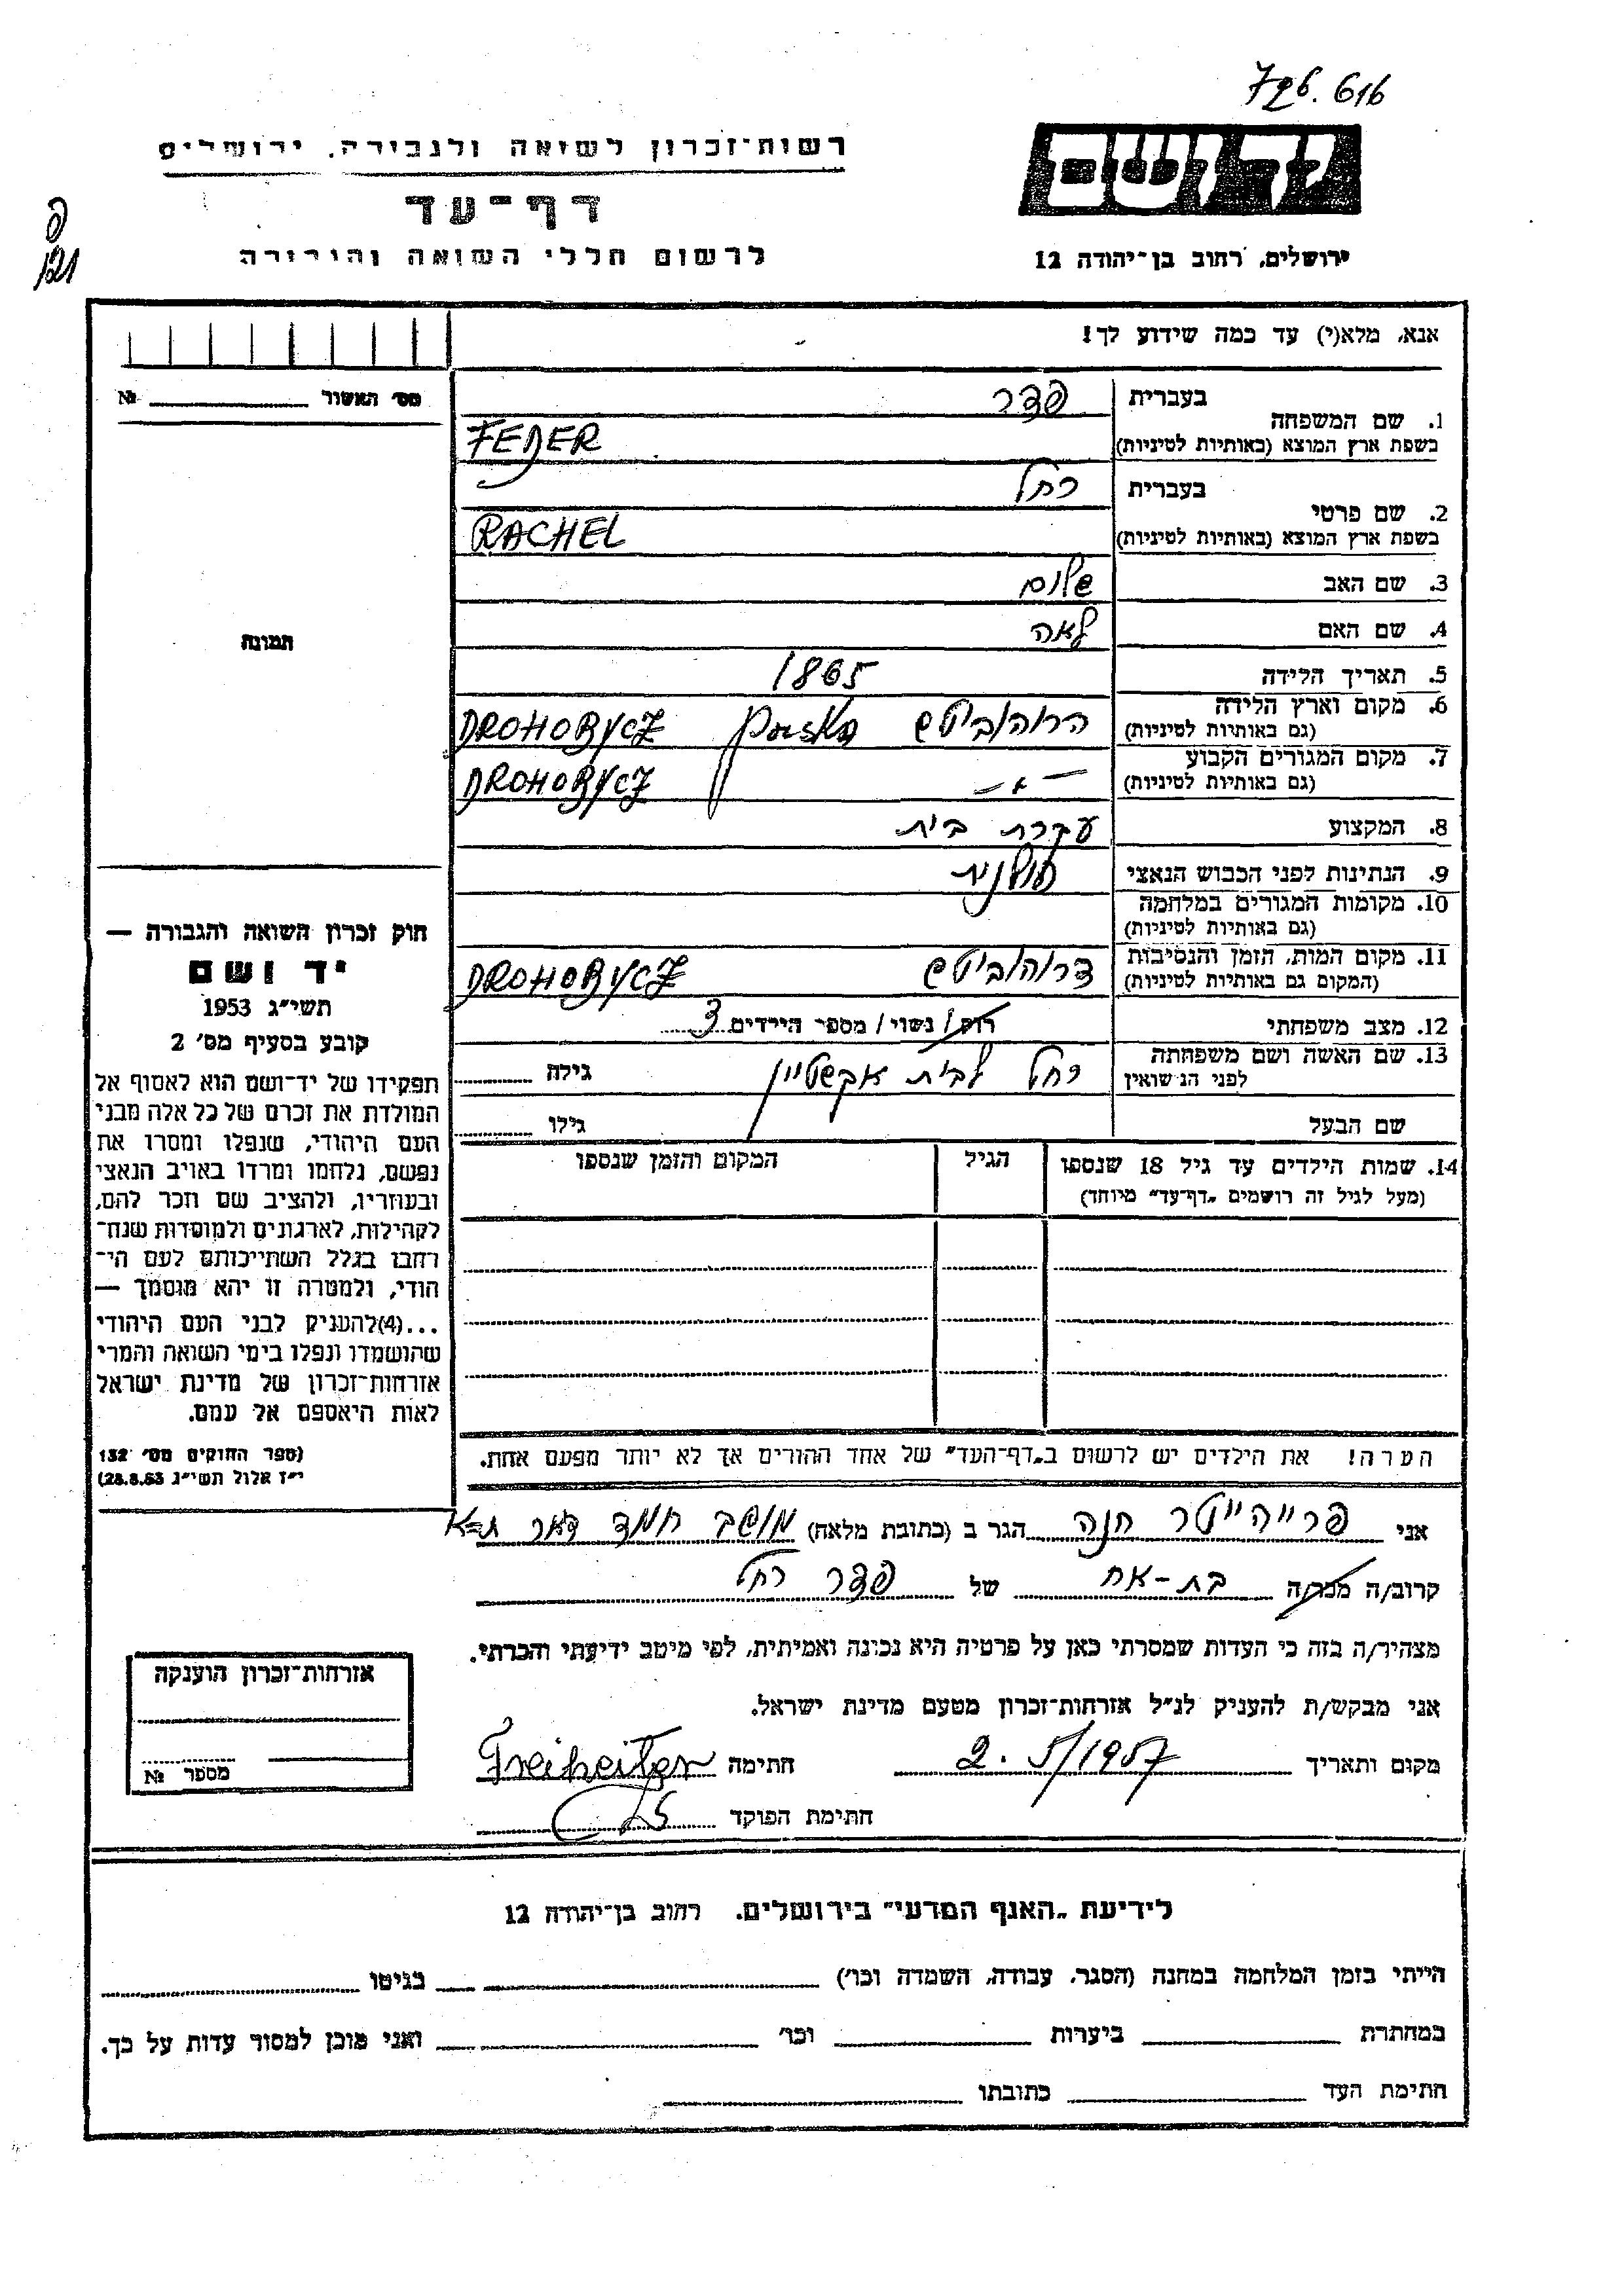 726.616
יד ושם
רשות-זכרון לשואה ולגבורה, ירושלים
דף-עד
לרשום חללי השואה והגבורה
ירושלים, רחוב בן-יהודה 12
פ
121
אנא, מלא(י) עד כמה שידוע לך!
מס׳ האשור № 
1. שם המשפחה
בעברית פדר
בשפת ארץ המוצא (באותיות לטיניות) FEDER
2. שם פרטי
בעברית רחל
בשפת ארץ המוצא (באותיות לטיניות) RACHEL
3. שם האב שלום
4. שם האם לאה
5. תאריך הלידה 1865
6. מקום וארץ הלידה
(גם באותיות לטיניות) דרוהוביטש Polska DROHOBYCZ
7. מקום המגורים הקבוע
(גם באותיות לטיניות) — " — DROHOBYCZ
8. המקצוע עקרת בית
9. הנתינות לפני הכבוש הנאצי פולנית
10. מקומות המגורים במלחמה
(גם באותיות לטיניות)
11. מקום המות, הזמן והנסיבות
(המקום גם באותיות לטיניות) דרוהוביטש DROHOBYCZ
12. מצב משפחתי רווק/ נשוי/ מספר הילדים 3
13. שם האשה ושם משפחתה
לפני הנשואין רחל לבית אקשטיין גילה
שם הבעל גילו
14. שמות הילדים עד גיל 18 שנספו הגיל המקום והזמן שנספו
(מעל לגיל זה רושמים „דף-עד” מיוחד)
הערה! את הילדים יש לרשום ב„דף-העד” של אחד ההורים אך לא יותר מפעם אחת.
תמונה
חוק זכרון השואה והגבורה —
יד ושם
תשי״ג 1953
קובע בסעיף מס׳ 2
תפקידו של יד-ושם הוא לאסוף אל
המולדת את זכרם של כל אלה מבני
העם היהודי, שנפלו ומסרו את
נפשם, נלחמו ומרדו באויב הנאצי
ובעוזריו, ולהציב שם וזכר להם,
לקהילות, לארגונים ולמוסדות שנח-
רחבו בגלל השתייכותם לעם הי-
הודי, ולמטרה זו יהא מוסמך —
...(4)להעניק לבני העם היהודי
שהושמדו ונפלו בימי השואה והמרי
אזרחות-זכרון של מדינת ישראל
לאות היאספם אל עמם.
(ספר החוקים מס׳ 132
י״ז אלול תשי״ג 28.8.53)
אני פרייהייטר חנה הגר ב (כתובת מלאה) מושב חמד דאר ת-א
קרוב/ה מכר/ה בת-אח של פדר רחל
מצהיר/ה בזה כי העדות שמסרתי כאן על פרטיה היא נכונה ואמיתית, לפי מיטב ידיעתי והכרתי.
אני מבקש/ת להעניק לנ״ל אזרחות-זכרון מטעם מדינת ישראל.
מקום ותאריך 2. 5/1957 חתימה Freiheiter
חתימת הפוקד
אזרחות-זכרון הוענקה
מספר №
לידיעת „האגף המדעי” בירושלים. רחוב בן-יהודה 12
הייתי בזמן המלחמה במחנה (הסגר, עבודה, השמדה וכו׳) בגיטו
במחתרת ביערות וכו׳ ואני מוכן למסור עדות על כך.
חתימת העד כתובתו